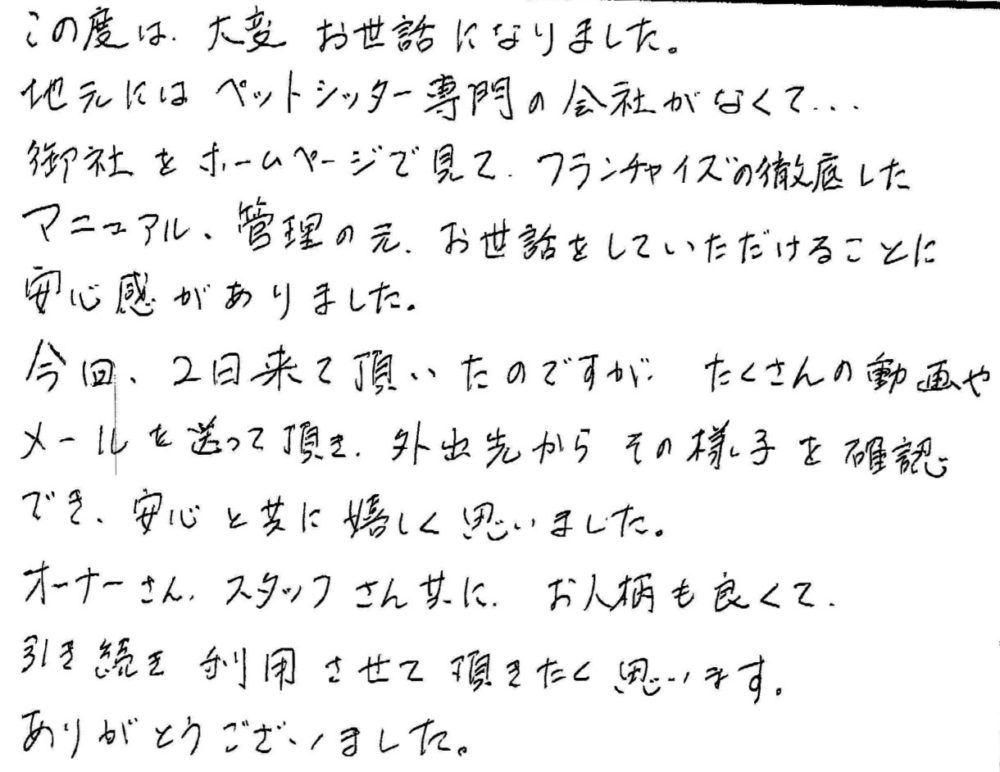 この度は、大変 お世話になりました。
地元には ペットシッター専門の会社がなくて...
御社をホームページで見て、フランチャイズの徹底した
マニュアル、管理の元、お世話をしていただけることに
安心感がありました。
今回、2日来て頂いたのですが、たくさんの動画や
メールを送って頂き、外出先からその様子を確認
でき、安心と共に嬉しく思いました。
オーナーさん、スタッフさん共に、お人柄も良くて、
引き続き利用させて頂きたく思います。
ありがとうございました。